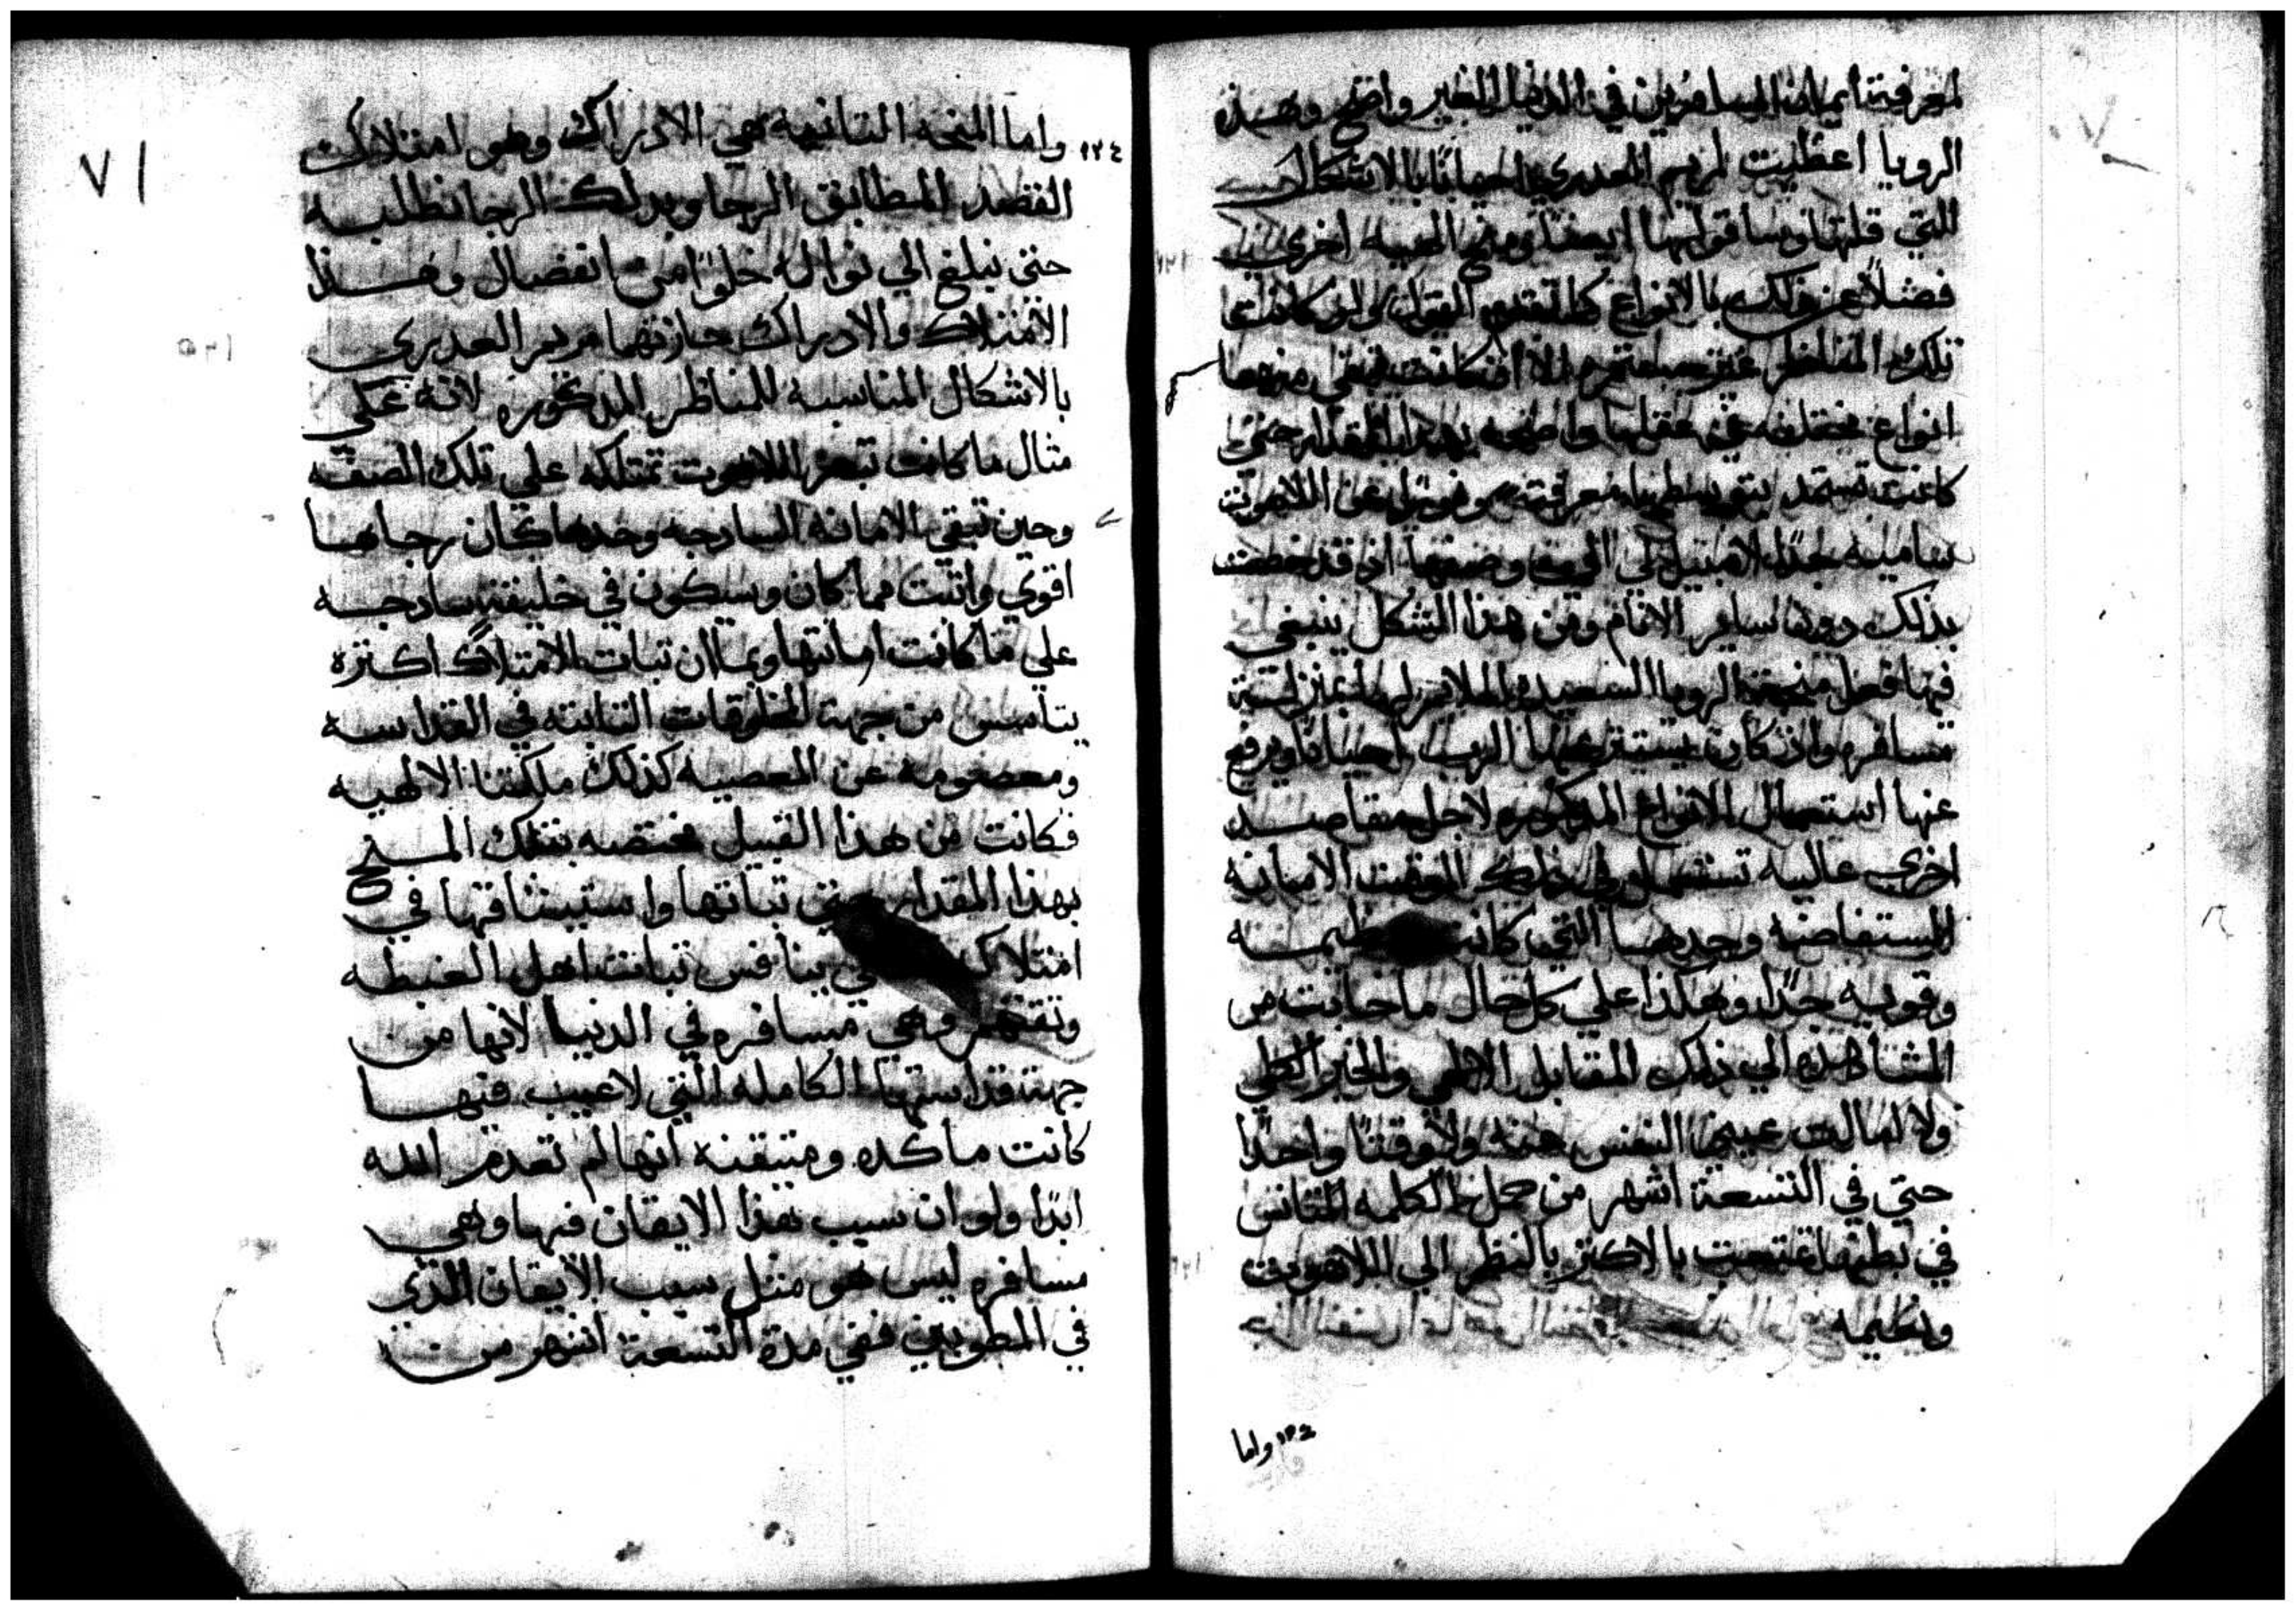 لمعرفة ايمان المسافرين في الدنيا الغير واضح وهذه
الرويا اعطيت لمريم العدري احيانًا بالاشكال
التي قلتها وساقولها ايضًا ومنح الهيه اخري
فضلاً عن ذلك بالانواع كما تقدم القول ولو كانت
تلك المناظر غير الا ان كانت تبقي منها
انواع مختلفه في عقلها واضحه بهذا المقدار حتي
كانت تستمد بتوسطها معرفة ونورًا عن اللاهوت
ساميه جدًا لا سبيل لي الي وصفها اذ قد خصت
بذلك دون ساير الانام ومن هذا الشكل ينبغي
فيها فعل منحة الرويا السعيده الملايم لها بمنزلة
مسافره واذ كان يستتر عنها الرب احيانًا ويرفع
عنها استعمال الانواع المذكوره لاجل مقاصد
اخري عاليه تستعمل في ذلك الوقت الامانه
المستفاضه وحدها التي كانت عظيمه
وقويه جدًا وهكذا علي كل حال ما خابت من
المشاهده الي ذلك المقابل الالهي والخير الكلي
ولا امالت عيني النفس عنه ولا وقتًا واحدًا
حتي في التسعة اشهر من حمل الكلمه المتانس
في بطنها تمتعت بالاكثر بالنظر الي اللاهوت
ونعيمه
١٢٤ واما
٧١
١٢٤ واما المنحه الثانيه هي الادراك وهو امتلاك
القصد المطابق الرجا وبدلك الرجا نطلبه
حتي نبلغ الي نواله خلوًا من انفصال وهذا
الامتلاك والادراك حازتهما مريم العدري
بالاشكال المناسبه للمناظر المدكوره لانه علي
مثال ما كانت تبصر اللاهوت تمتلكه علي تلك الصفه
وحين تبقي الامانه السادجه وحدها كان رجاها
اقوي واثبت مما كان وسيكون في خليقة سادجه
علي ما كانت امانتها وبما ان تبات الامتلاك اكثره
يتاسس من جهة المخلوقات التابته في القداسه
ومعصومه عن المعصيه كذلك ملكتنا الالهيه
فكانت من هذا القبيل مختصه بتلك المنح
بهذا المقدار حتي تباتها واستيثاقها في
امتلاك ينافس تبات اهل الغبطه
وهي مسافره في الدنيا لانها من
جهة قداستها الكامله التي لا عيب فيها
كانت ماكده ومتيقنه انها لم تعدم الله
ابدًا ولو ان سبب هذا الايقان فيها وهي
مسافره ليس هو مثل سبب الايقان الذي
في المطوبين ففي مدة التسعة اشهر من